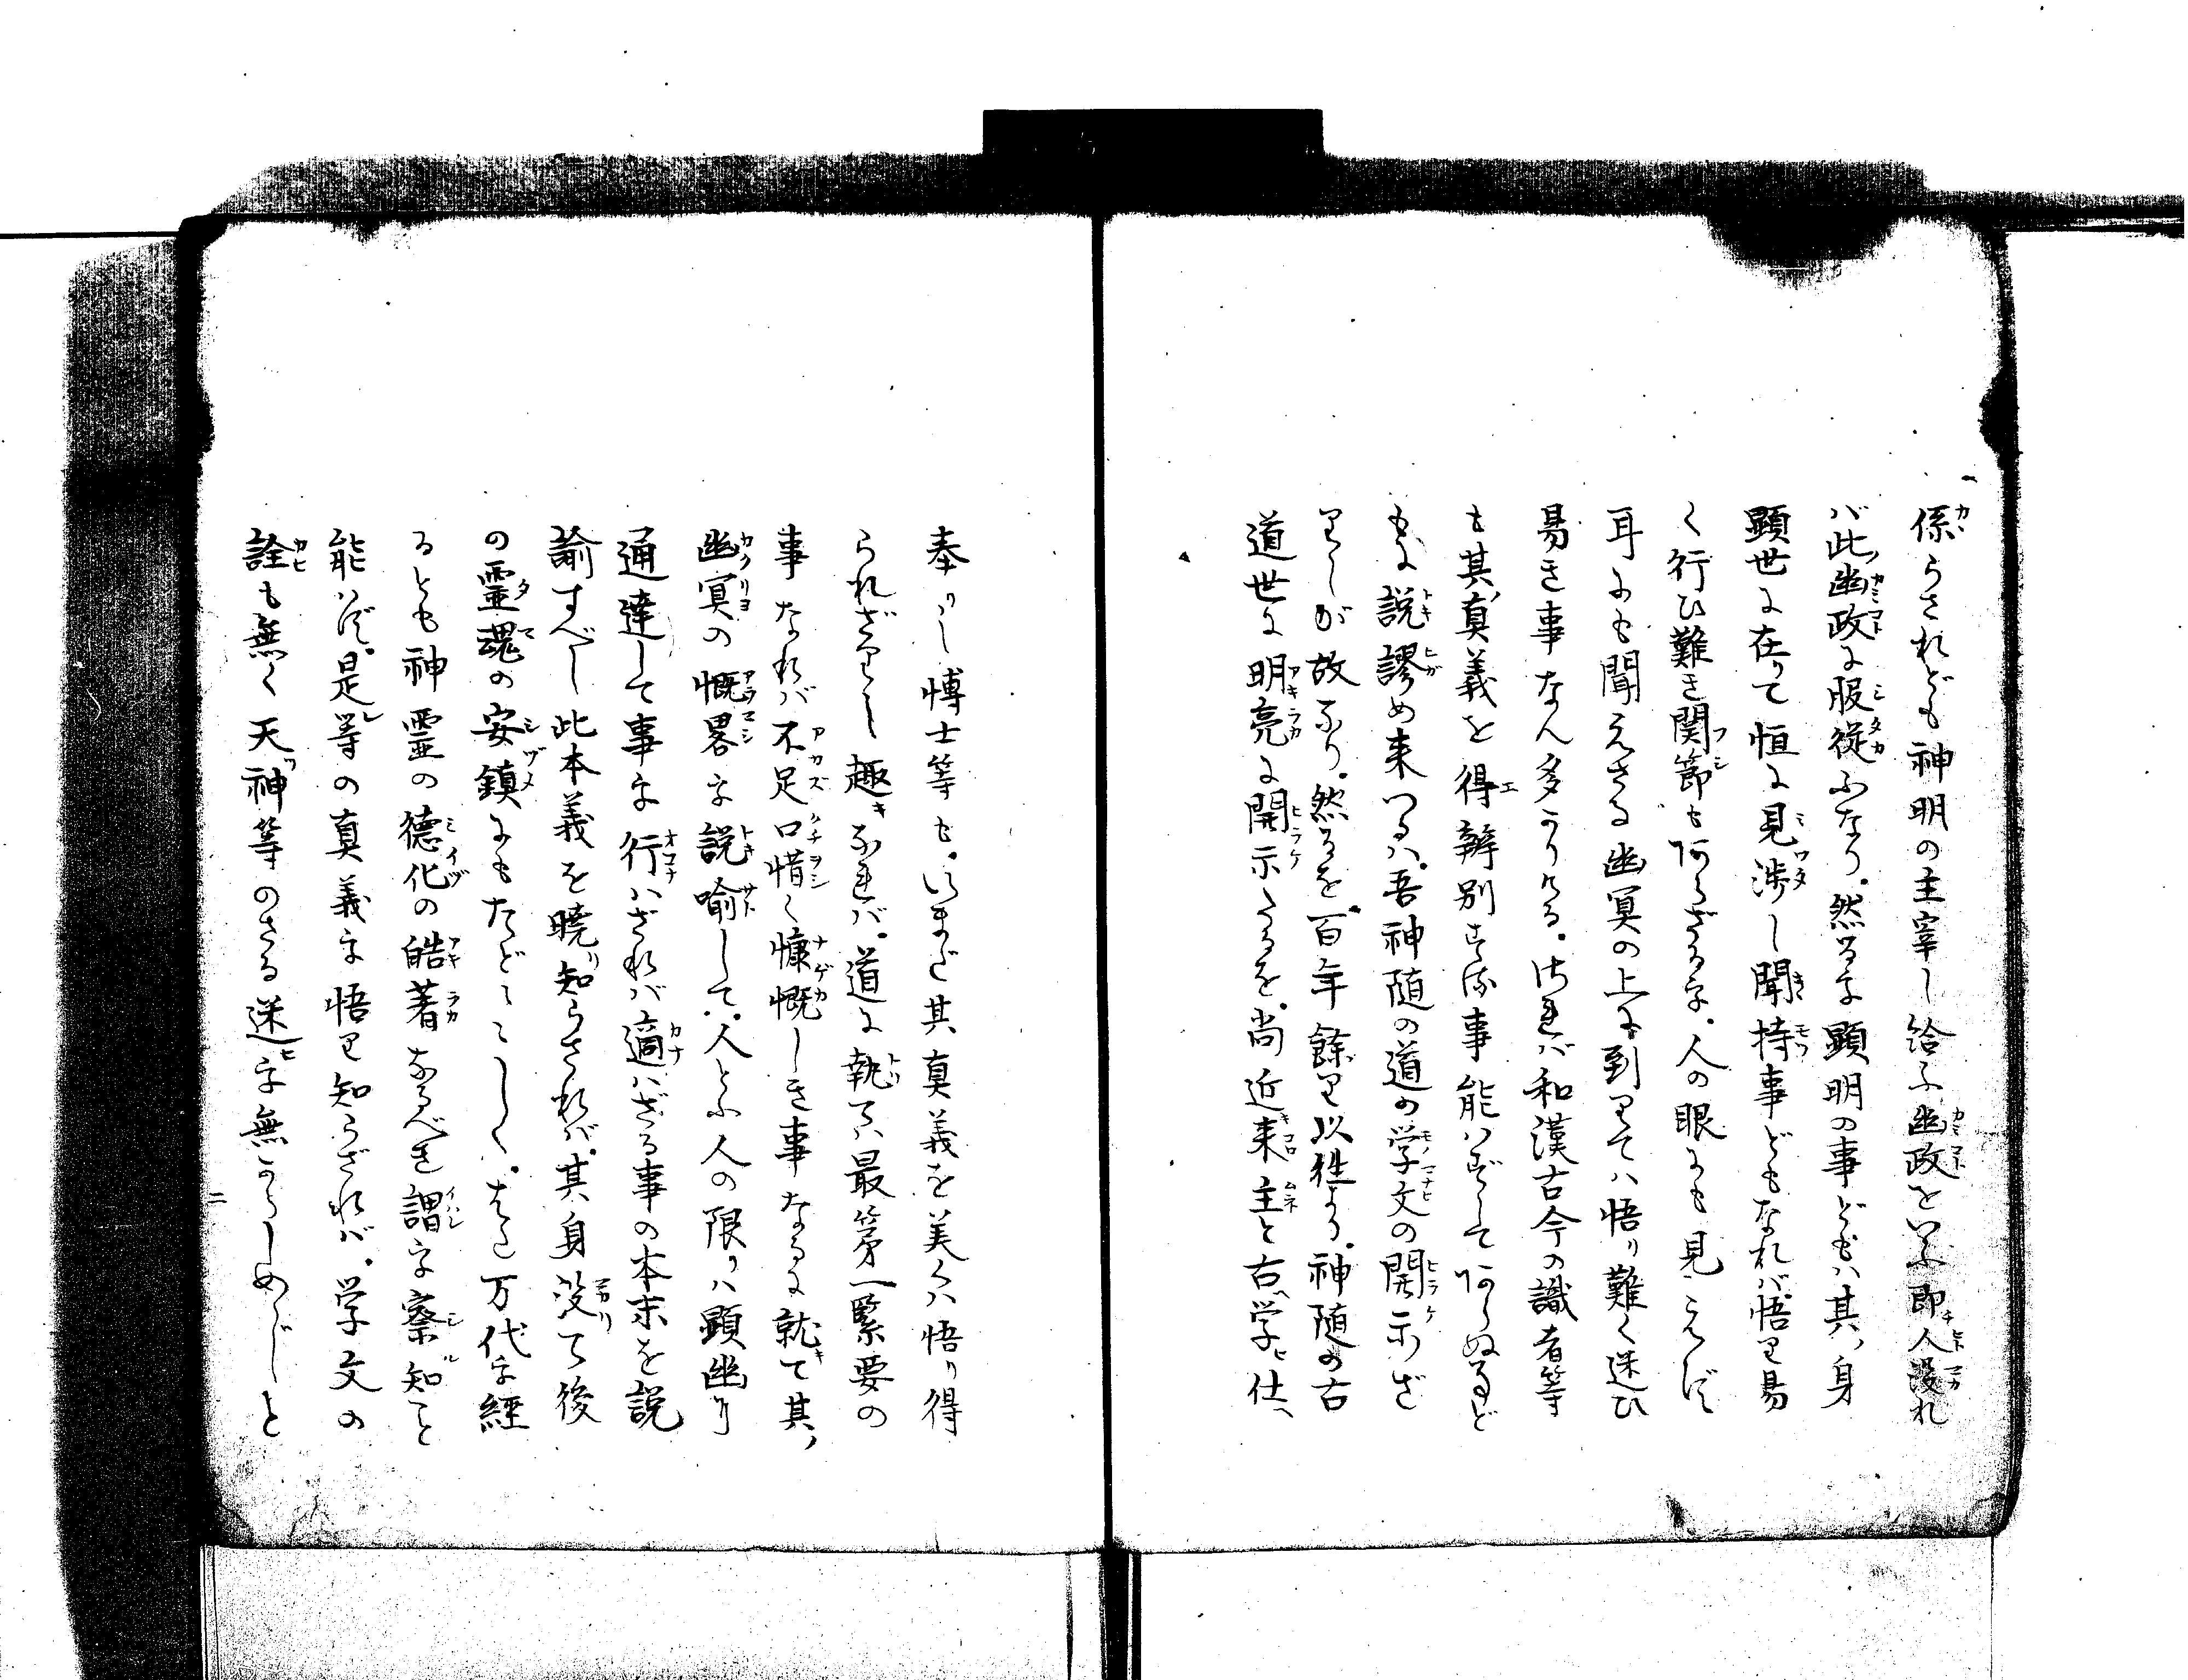 係らされども神明の主宰し給ふ幽政をいふ即人没れ
バ此幽政に服従ふなり。然るに顕明の事どもハ其ノ身
顕世に在りて恒に見渉し聞持事どもなれバ悟り易
く行ひ難き関節も阿らざるを。人の眼にも見えず
耳にも聞えざる幽冥の上に到りてハ悟り難く迷ひ
易き事なん多かりける。されバ和漢古今の識者等
も其ノ真義を得辨別する事能ハずして阿らぬことど
もに説謬め来つるハ。吾神随の道の学文の開示ざ
りしが故なり。然るを百年餘り以往より。神随の古
道世に明亮に開示たるを。尚近来主と古ヘ学ヒ仕ヘ
奉りし博士等も。いまだ其真義を美くハ悟り得
られざりし趣きなれバ。道に執てハ最第一緊要の
事なれバ不足口惜く慷慨しき事なるに就きて其ノ
幽冥の概畧を説喻して。人とふ人の限りハ顕幽に
通達して事を行ハざれバ適ハざる事の本末を説
諭すべし此本義を暁り知らされバ。其身没りて後
の霊魂の安鎮にもたど〻〻しく。はた万代を経
るとも神霊の徳化の皓著なるべき謂を察知こと
能ハず。是レ等の真義を悟り知らざれバ。学文の
詮も無く天ツ神等のさる迷ヒを無からしめむと
二